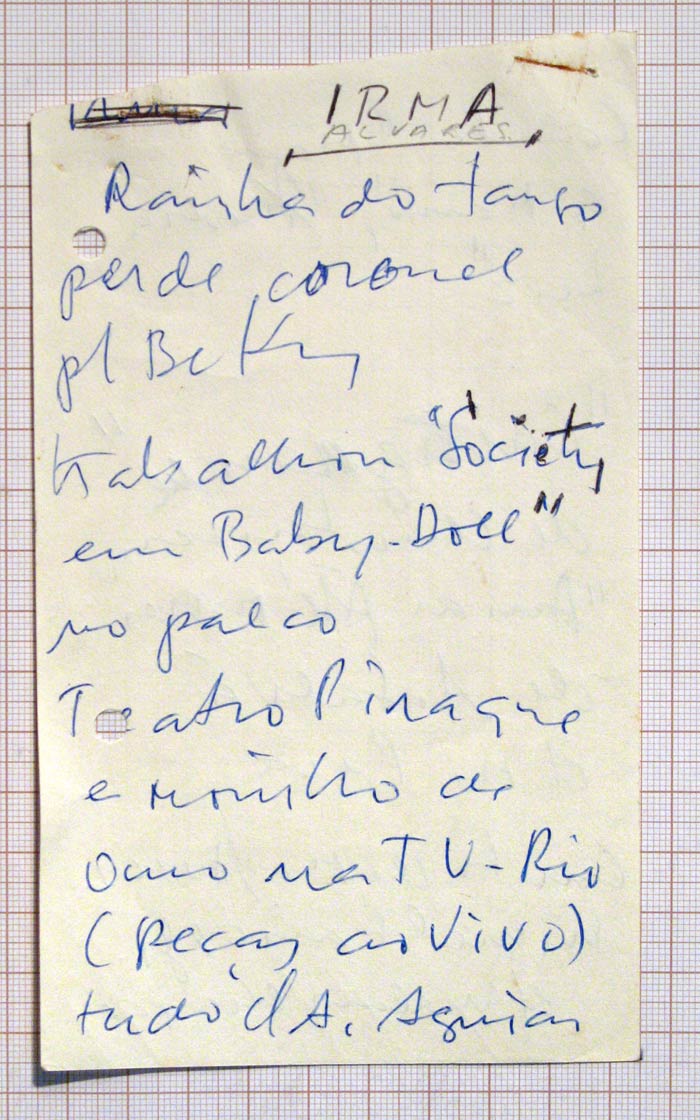 IRMA
ALVARES
Rainha do tango
perde coronel
p/ Be Ky
trabalhou "Society
em Baby-Doll"
no palco
Teatro
e moinho de
ouro na TV-Rio
(peças ao Vivo)
tudo c/ A. Aguiar